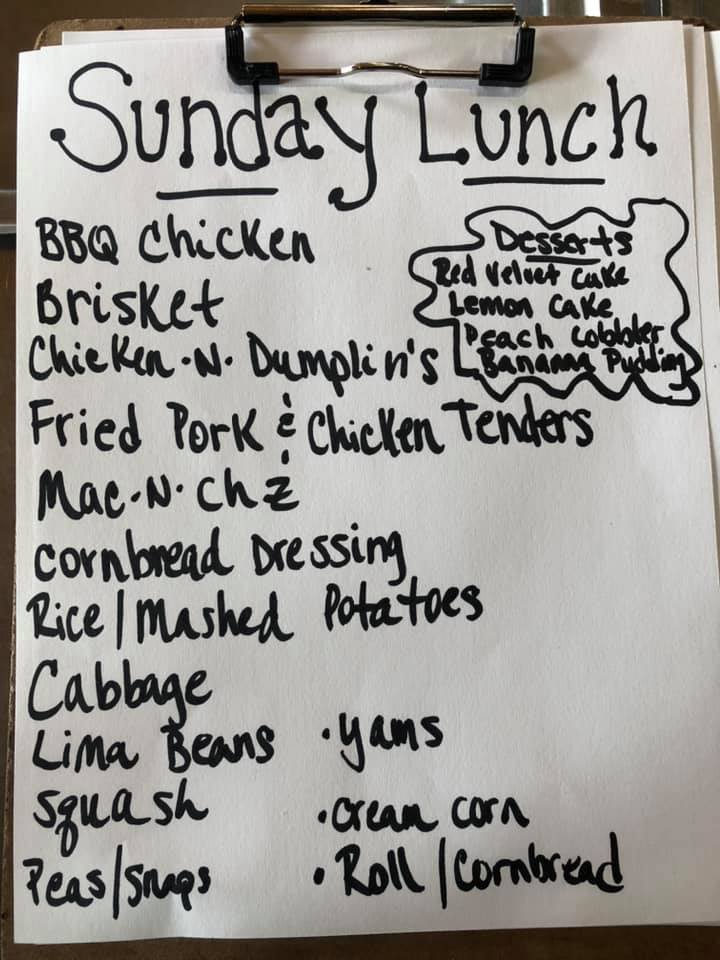 Sunday Lunch
BBQ Chicken
Brisket
Chicken-N-Dumplin's
Fried Pork & Chicken Tenders
Mac-N-Chz
Cornbread Dressing
Rice/Mashed Potatoes
Cabbage
Lima Beans
Squash
Peas/Snaps
•Yams
•Cream Corn
•Roll/Cornbread
Desserts
Red Velvet Cake
Lemon Cake
Peach Cobbler
Banana Pudding